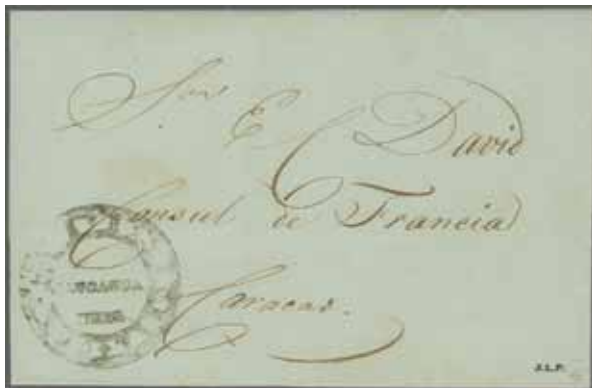 Sor. E. David
Consul de Francia
Caracas.
J.L.P.